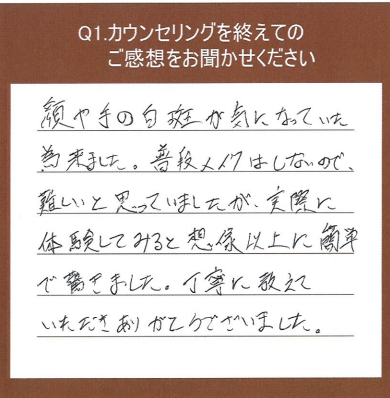 Q1.カウンセリングを終えての
ご感想をお聞かせください
顔や手の白斑が気になっていた
為来ました。普段メイクはしないので、
難しいと思っていましたが、実際に
体験してみると想像以上に簡単
で驚きました。丁寧に教えて
いただきありがとうございました。